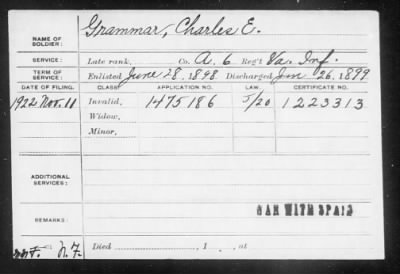 NAME OF SOLDIER: Grammar, Charles E.
SERVICE: Late rank, Co. A. 6 Reg't Va. Inf.
TERM OF SERVICE: Enlisted June 28, 1898 Discharged Jan 26, 1899
DATE OF FILING. CLASS. APPLICATION NO. LAW. CERTIFICATE NO.
1922 Nov. 11 Invalid, 1475186 5/20 1223313
Widow,
Minor,
ADDITIONAL SERVICES:
WAR WITH SPAIN
REMARKS:
Died , 1 , at